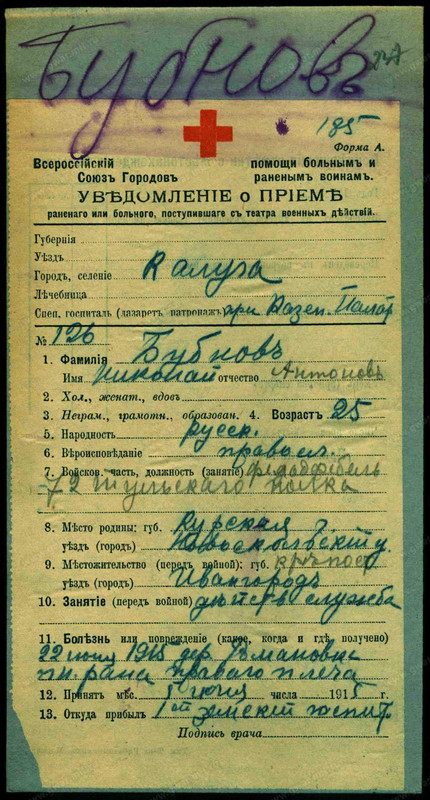 Бубновъ
Форма А.
Всероссійскій помощи больнымъ и
Союзъ Городовъ раненымъ воинамъ.
УВѢДОМЛЕНІЕ о ПРІЕМѢ
раненаго или больного, поступившаго съ театра военныхъ дѣйствій.
Губернія
Уѣздъ
Городъ, селеніе Калуга
Лѣчебница
Спец. госпиталь (лазаретъ, патронажъ) при Казен. Палат
№ 126
1. Фамилія Бубновъ
Имя Николай отчество Антоновъ
2. Хол., женат., вдов.
3. Неграм., грамотн., образован. 4. Возрастъ 25
5. Народность русск.
6. Вѣроисповѣданіе правосл.
7. Войсков. часть, должность (занятіе) фельдфебель
72 Тульскаго полка
8. Мѣсто родины: губ. Курская
уѣздъ (городъ)
9. Мѣстожительство (передъ войной): губ.
уѣздъ (городъ) Ивангородъ
10. Занятіе (передъ войной) служба
11. Болѣзнь или поврежденіе (какое, когда и гдѣ получено)
22 1915 дер.
рана праваго плеча
12. Принятъ мѣс. числа 1915 г.
13. Откуда прибылъ 1 ой земскій госпит.
Подпись врача